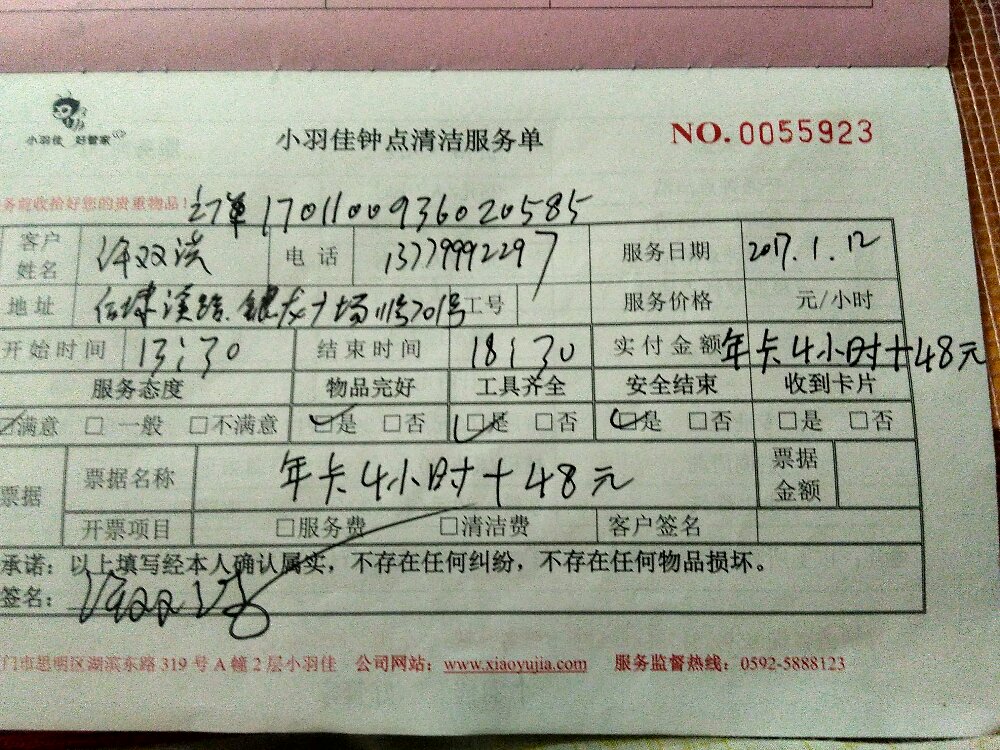 小羽佳 好管家
小羽佳钟点清洁服务单
NO. 0055923
务前收拾好您的贵重物品！
订单 170110093602 0585
客户姓名 许双洪 电话 13779992297 服务日期 2017.1.12
地址 溪路、银龙广场 701号 工号 服务价格 元/小时
开始时间 13:30 结束时间 18:30 实付金额 年卡4小时+48元
服务态度 物品完好 工具齐全 安全结束 收到卡片
☑满意 □一般 □不满意 ☑是 □否 ☑是 □否 ☑是 □否 □是 □否
票据 票据名称 年卡4小时+48元 票据金额
开票项目 □服务费 □清洁费 客户签名
承诺：以上填写经本人确认属实，不存在任何纠纷，不存在任何物品损坏。
签名：许双洪
门市思明区湖滨东路 319 号 A 幢 2 层小羽佳 公司网站：www.xiaoyujia.com 服务监督热线：0592-5888123